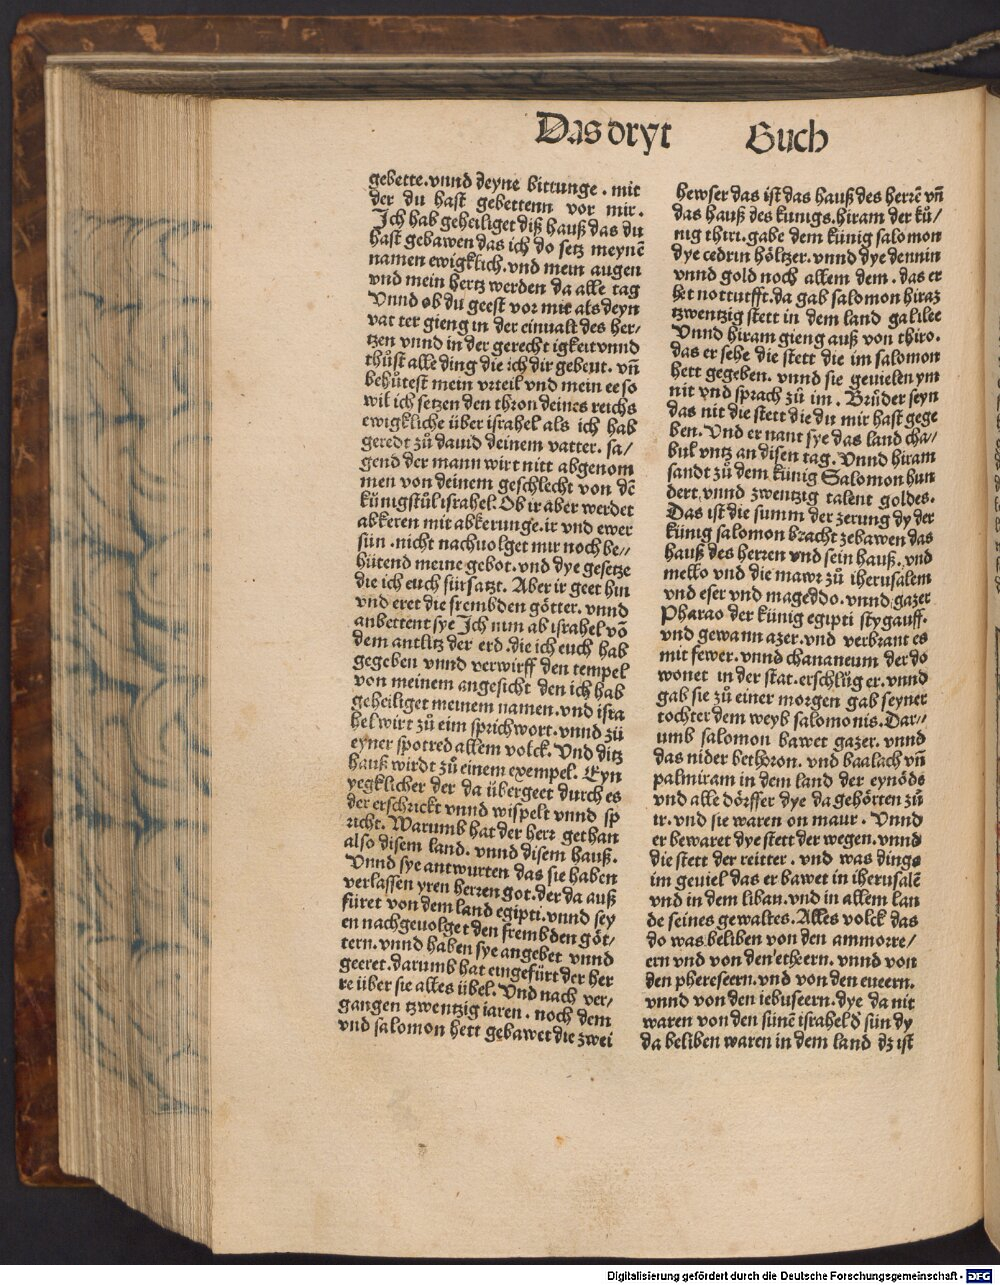 Das dryt Buch
gebette. vnnd deyne bittunge. mit
der du hast gebettenn vor mir.
Jch hab geheiliget diß hauß das du
hast gebawen das ich do setz meynē
namen ewigklich. vnd mein augen
vnd mein hertz werden da alle tag
Vnnd ob du geest vor mir als deyn
vat ter gieng in der einualt des her-
tzen vnnd in der gerecht igkeit vnnd
thůst alle ding die ich dir gebeut. vn̄
behůtest mein vrteil vnd mein ee so
wil ich setzen den thron deines reichs
ewigkliche über israhel als ich hab
geredt zů dauid deinem vatter. sa/
gend der mann wirt nitt abgenom
men von deinem geschlecht von dē
künigstůl israhel. Ob ir aber werdet
abkeren mit abkerunge. ir vnd ewer
sün. nicht nachuolget mir noch be//
hütend meine gebot. vnd dye gesetze
die ich euch fürsatzt. Aber ir geet hin
vnd eret die frembden götter. vnnd
anbettent sye Jch nim ab israhel vō
dem antlitz der erd. die ich euch hab
gegeben vnnd verwirff den tempel
von meinem angesicht den ich hab
geheiliget meinem namen. vnd isra
hel wirt zů eim sprichwort. vnnd zů
eyner spotred allem volck. Vnd ditz
hauß wirdt zů einem exempel. Eyn
yegklicher der da übergeet durch es
der erschrickt vnnd wispelt vnnd sp
richt. Warumb hat der herr gethan
also disem land. vnnd disem hauß.
Vnnd sye antwurten das sie haben
verlassen yren herren got. der da auß
füret von dem land egipti. vnnd sey
en nachgeuolget den frembden göt/
tern. vnnd haben sye angebet vnnd
geeret. darumb hat eingefürt der her
re über sie alles übel. Vnd nach ver/
gangen tzwentzig iaren. noch dem
vnd salomon hett gebawet die zwei
hewser das ist das hauß des herrē vn̄
das hauß des kunigs. hiram der kü/
nig thiri. gabe dem künig salomon
dye cedrin höltzer. vnnd dye dennin
vnnd gold noch allem dem. das er
het notturfft. da gab salomon hiraz
tzwentzig stett in dem land galilee
Vnnd hiram gieng auß von thiro.
das er sehe die stett die im salomon
hett gegeben. vnnd sie geuielen ym
nit vnd sprach zů im. Brůder seyn
das nit die stett die du mir hast gege
ben. Vnd er nant sye das land cha//
bul vntz an disen tag. Vnnd hiram
sandt zů dem künig Salomon hun
dert. vnnd zwentzig talent goldes.
Das ist die summ der zerung dy der
künig salomon bracht zebawen das
hauß des herren vnd sein hauß. vnd
mello vnd die mawr zů iherusalem
vnd eser vnd mageddo. vnnd gazer
Pharao der künig egipti styg auff.
vnd gewann azer. vnd verbrant es
mit fewer. vnnd chananeum der do
wonet in der stat. erschlůg er. vnnd
gab sie zů einer morgen gab seyner
tochter dem weyb salomonis. Dar//
umb salomon bawet gazer. vnnd
das nider bethoron. vnd baalach vn̄
palmiram in dem land der eynöds
vnd alle dörffer dye da gehörten zů
ir. vnd sie waren on maur. Vnnd
er bewaret dye stett der wegen. vnnd
die stett der reitter. vnd was dings
im geuiel das er bawet in iherusalē
vnd in dem liban. vnd in allem lan
de seines gewaltes. Alles volck das
do was beliben von den ammorre/
ern vnd von den etheern. vnnd von
den phereseern. vnd von den eueern.
vnnd von den iebuseern. dye da nit
waren von den sünē israhel d̄ sün dy
da beliben waren in dem land dz ist
Digitalisierung gefördert durch die Deutsche Forschungsgemeinschaft - DFG